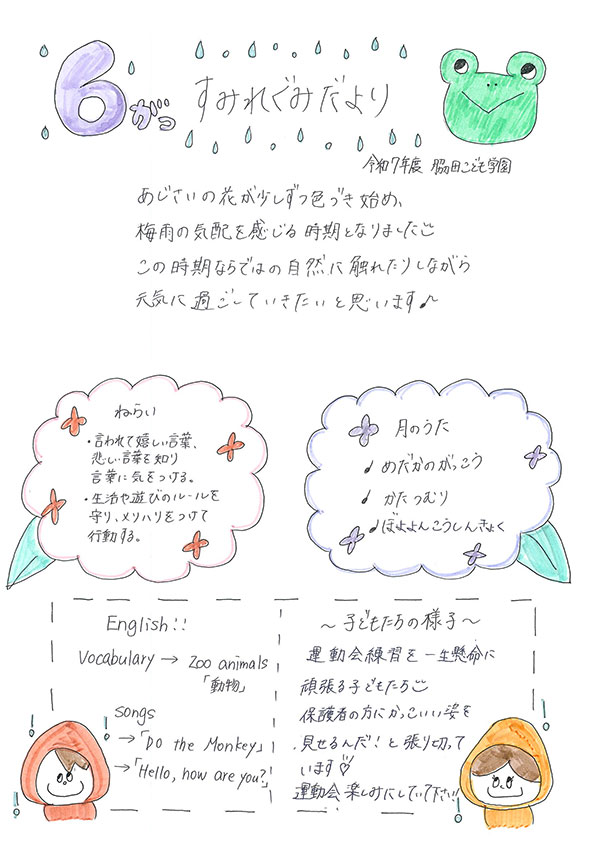 6がつ すみれぐみだより
令和7年度 脇田こども学園
あじさいの花が少しずつ色づき始め、
梅雨の気配を感じる時期となりました
この時期ならではの自然に触れたりしながら
元気に過ごしていきたいと思います♪
ねらい
・言われて嬉しい言葉、
悲しい言葉を知り
言葉に気をつける。
・生活や遊びのルールを
守り、メリハリをつけて
行動する。
月のうた
♩めだかのがっこう
♩かたつむり
♩ぼよよんこうしんきょく
English!!
Vocabulary → zoo animals
「動物」
songs
→「Do the Monkey」
→「Hello, how are you?」
～子どもたちの様子～
運動会練習を一生懸命に
頑張る子どもたち
保護者の方にかっこいい姿を
見せるんだ!と張り切って
います♡
運動会楽しみにしていて下さい!